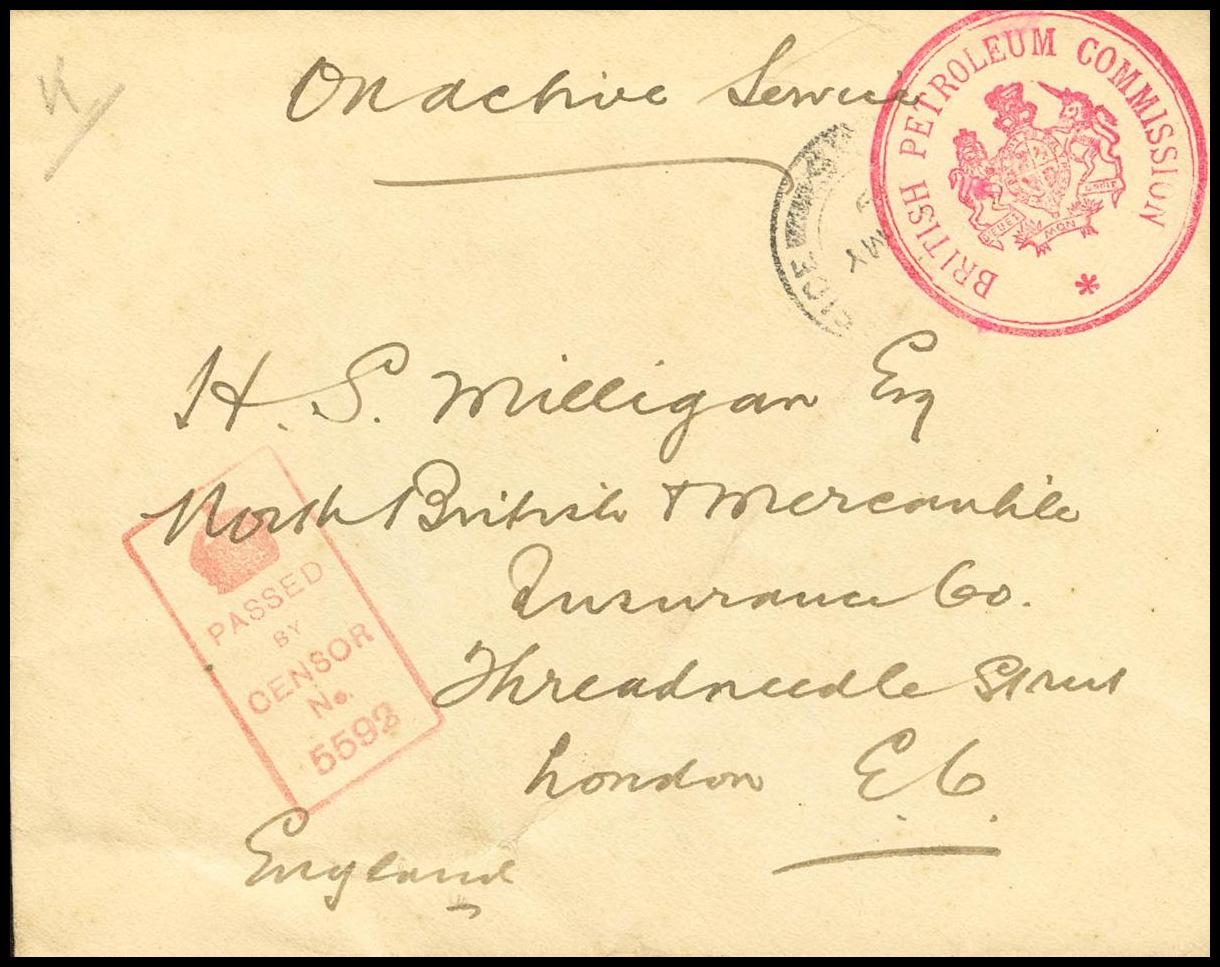 On active Service
BRITISH PETROLEUM COMMISSION *
DIEU ET
MON
MY
H. S. Milligan Esq
North British & Mercantile
Insurance Co.
Threadneedle Street
London E.C.
England
PASSED
BY
CENSOR
No.
5592